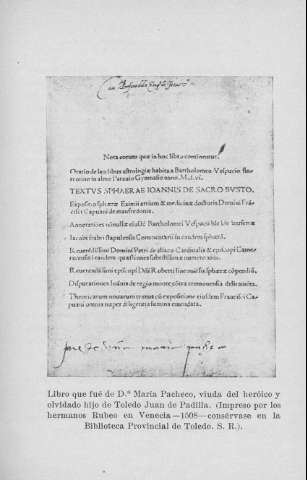 Nota eorum quæ in hoc libro continentur.
Oratio de laudibus astrologiæ habita a Bartholomeo Vespucio flo
rentino in almo Patauio Gymnasio anno. M.d.vi.
TEXTVS SPHAERAE IOANNIS DE SACRO BVSTO.
Expositio sphæræ Eximii artium & medicinæ doctoris Domini Fran
cisci Capuani de manfredonia.
Annotationes nonnullæ eiusdē Bartholomei Vespucii
Iacobi fabri stapulensis Commentarii in eandem sphæram.
Reuerendissimi Domini Petri de aliaco Cardinalis & episcopi Came
racensis in eandem quæstiones subtilissimæ numero
Reuerendissimi episcopi Dñi Roberti linconiensis sphæræ cōpendiū.
Disputationes Ioānis de regio monte cōtra cremonensia deliramēta.
Theoricarum nouarum textus cū expositione eiusdem Francisci Ca
puani omnia nuper diligentia summa emendata.
doña maria pacheco
Libro que fué de D.ª María Pacheco, viuda del heróico y
olvidado hijo de Toledo Juan de Padilla. (Impreso por los
hermanos Rubeo en Venecia—1508—consérvase en la
Biblioteca Provincial de Toledo. S. R.).